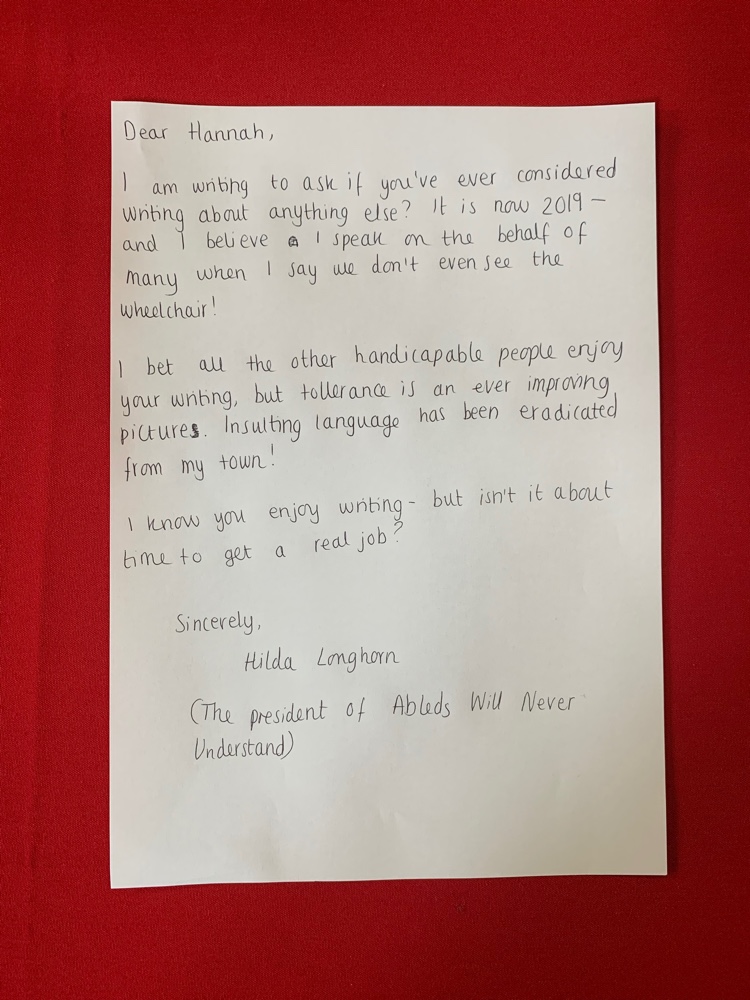 Dear Hannah,
I am writing to ask if you've ever considered
writing about anything else? It is now 2019 -
and I believe a I speak on the behalf of
many when I say we don't even see the
wheelchair!
I bet all the other handicapable people enjoy
your writing, but tollerance is an ever improving
pictures. Insulting language has been eradicated
from my town!
I know you enjoy writing - but isn't it about
time to get a real job?
Sincerely,
Hilda Longhorn
(The president of Ableds Will Never
Understand)